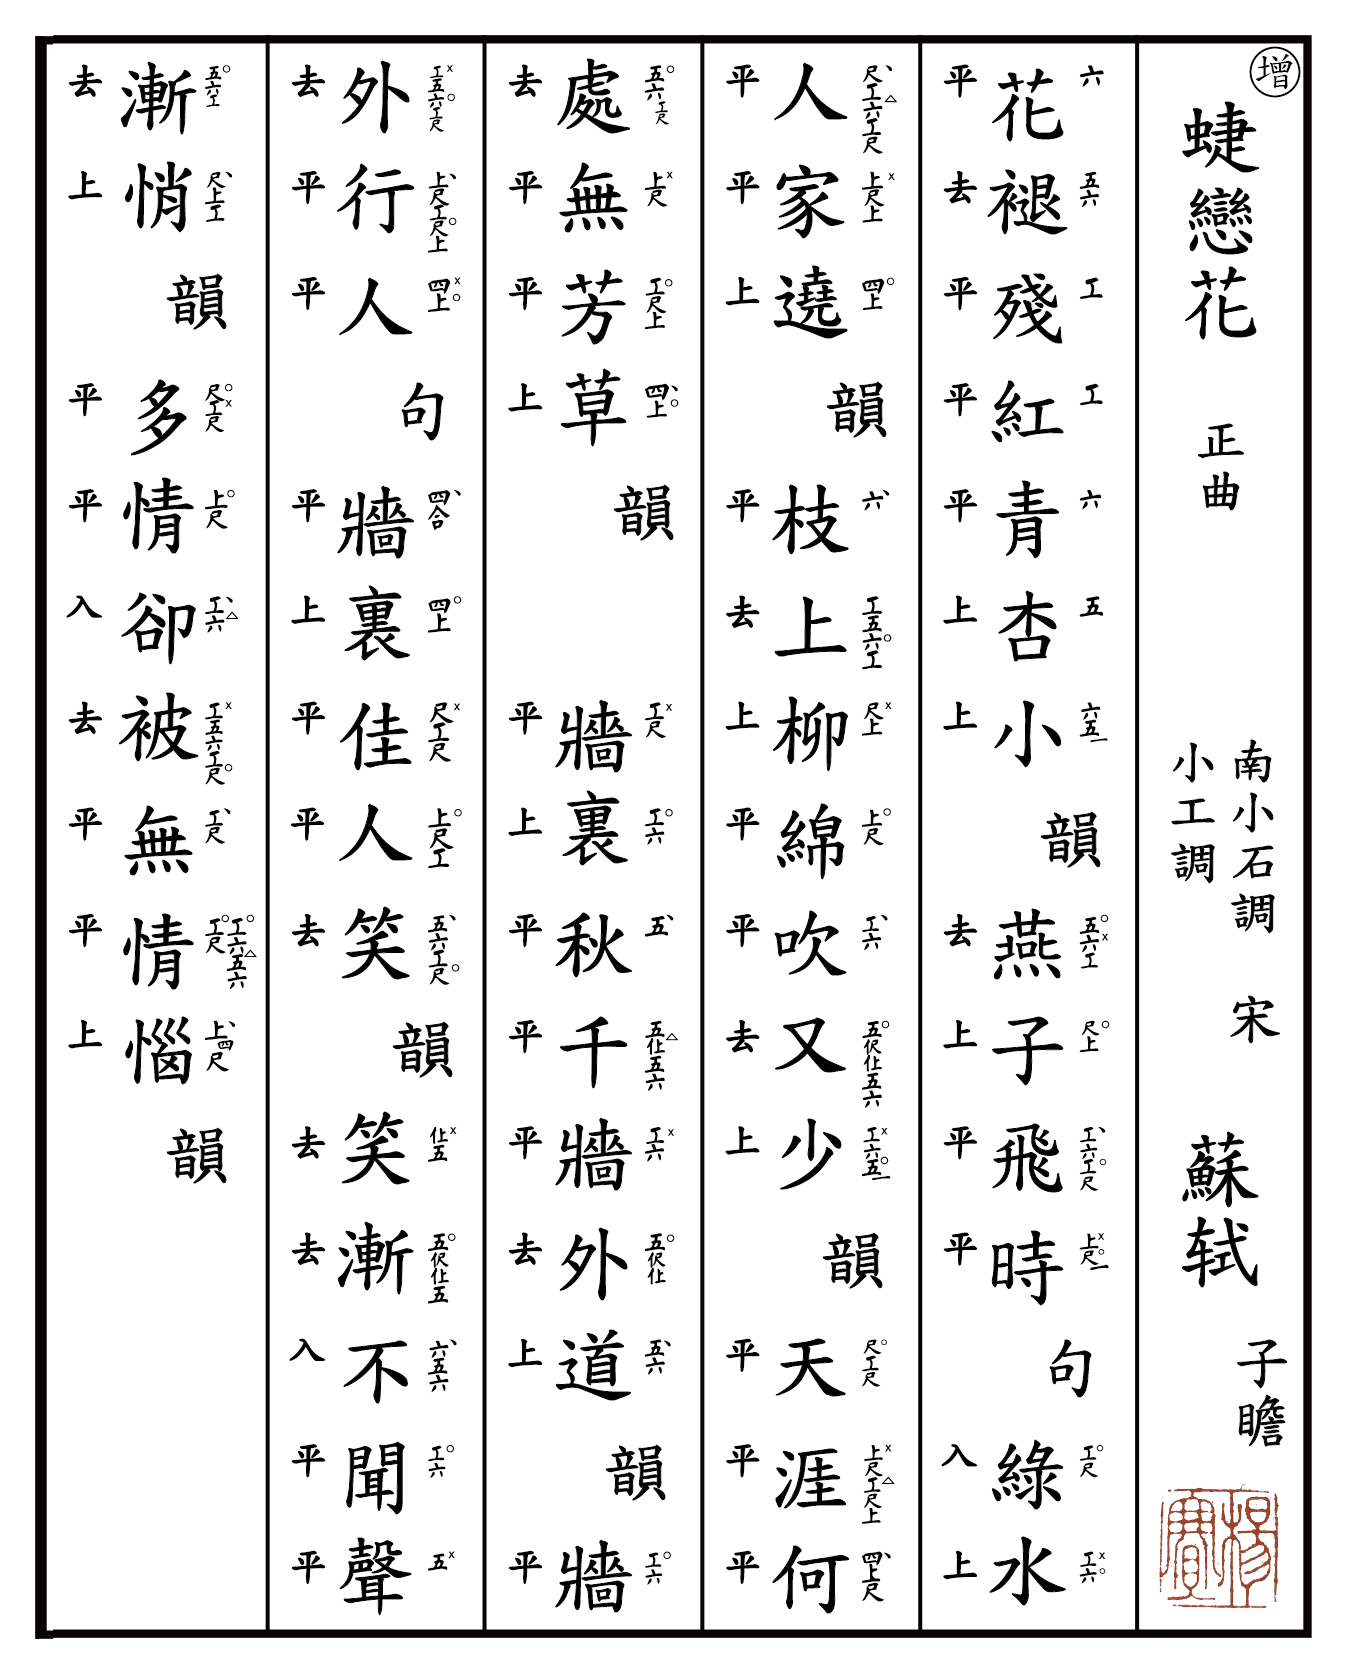 增
蜨戀花 正曲
南小石調
小工調
宋 蘇轼 子瞻
六 五六 工 工 六 五 六五一 五六工 尺上 工六工尺 上尺一 工尺 工六
花褪殘紅青杏小 韻 燕子飛時 句 綠水
平去平平平上上去上平平入上
尺工六工尺 上尺上 四上 六 工五六工 尺上 上尺 工六 五伬仩五六 工六五一 尺工尺 上尺工尺上 四上尺
人家遶 韻 枝上柳綿吹又少 韻 天涯何
平平上平去上平平去上平平平
五六工尺 上尺 工尺上 四上 工尺 工六 五 五仩五六 工六 五伬仩 五六 工六
處無芳草 韻 牆裏秋千牆外道 韻 牆
去平平上平上平平平去上平
工五六工尺 上尺工尺上 四上 四合 四上 尺工尺 上尺工 五六工尺 仩五 五伬仩五 六五六 工六 五
外行人 句 牆裏佳人笑 韻 笑漸不聞聲
去平平平上平平去去去入平平
五六工 尺上工 尺工尺 上尺 工六 工五六工尺 工尺 工六五六工尺 上四尺
漸悄 韻 多情卻被無情惱 韻
去上平平入去平平上